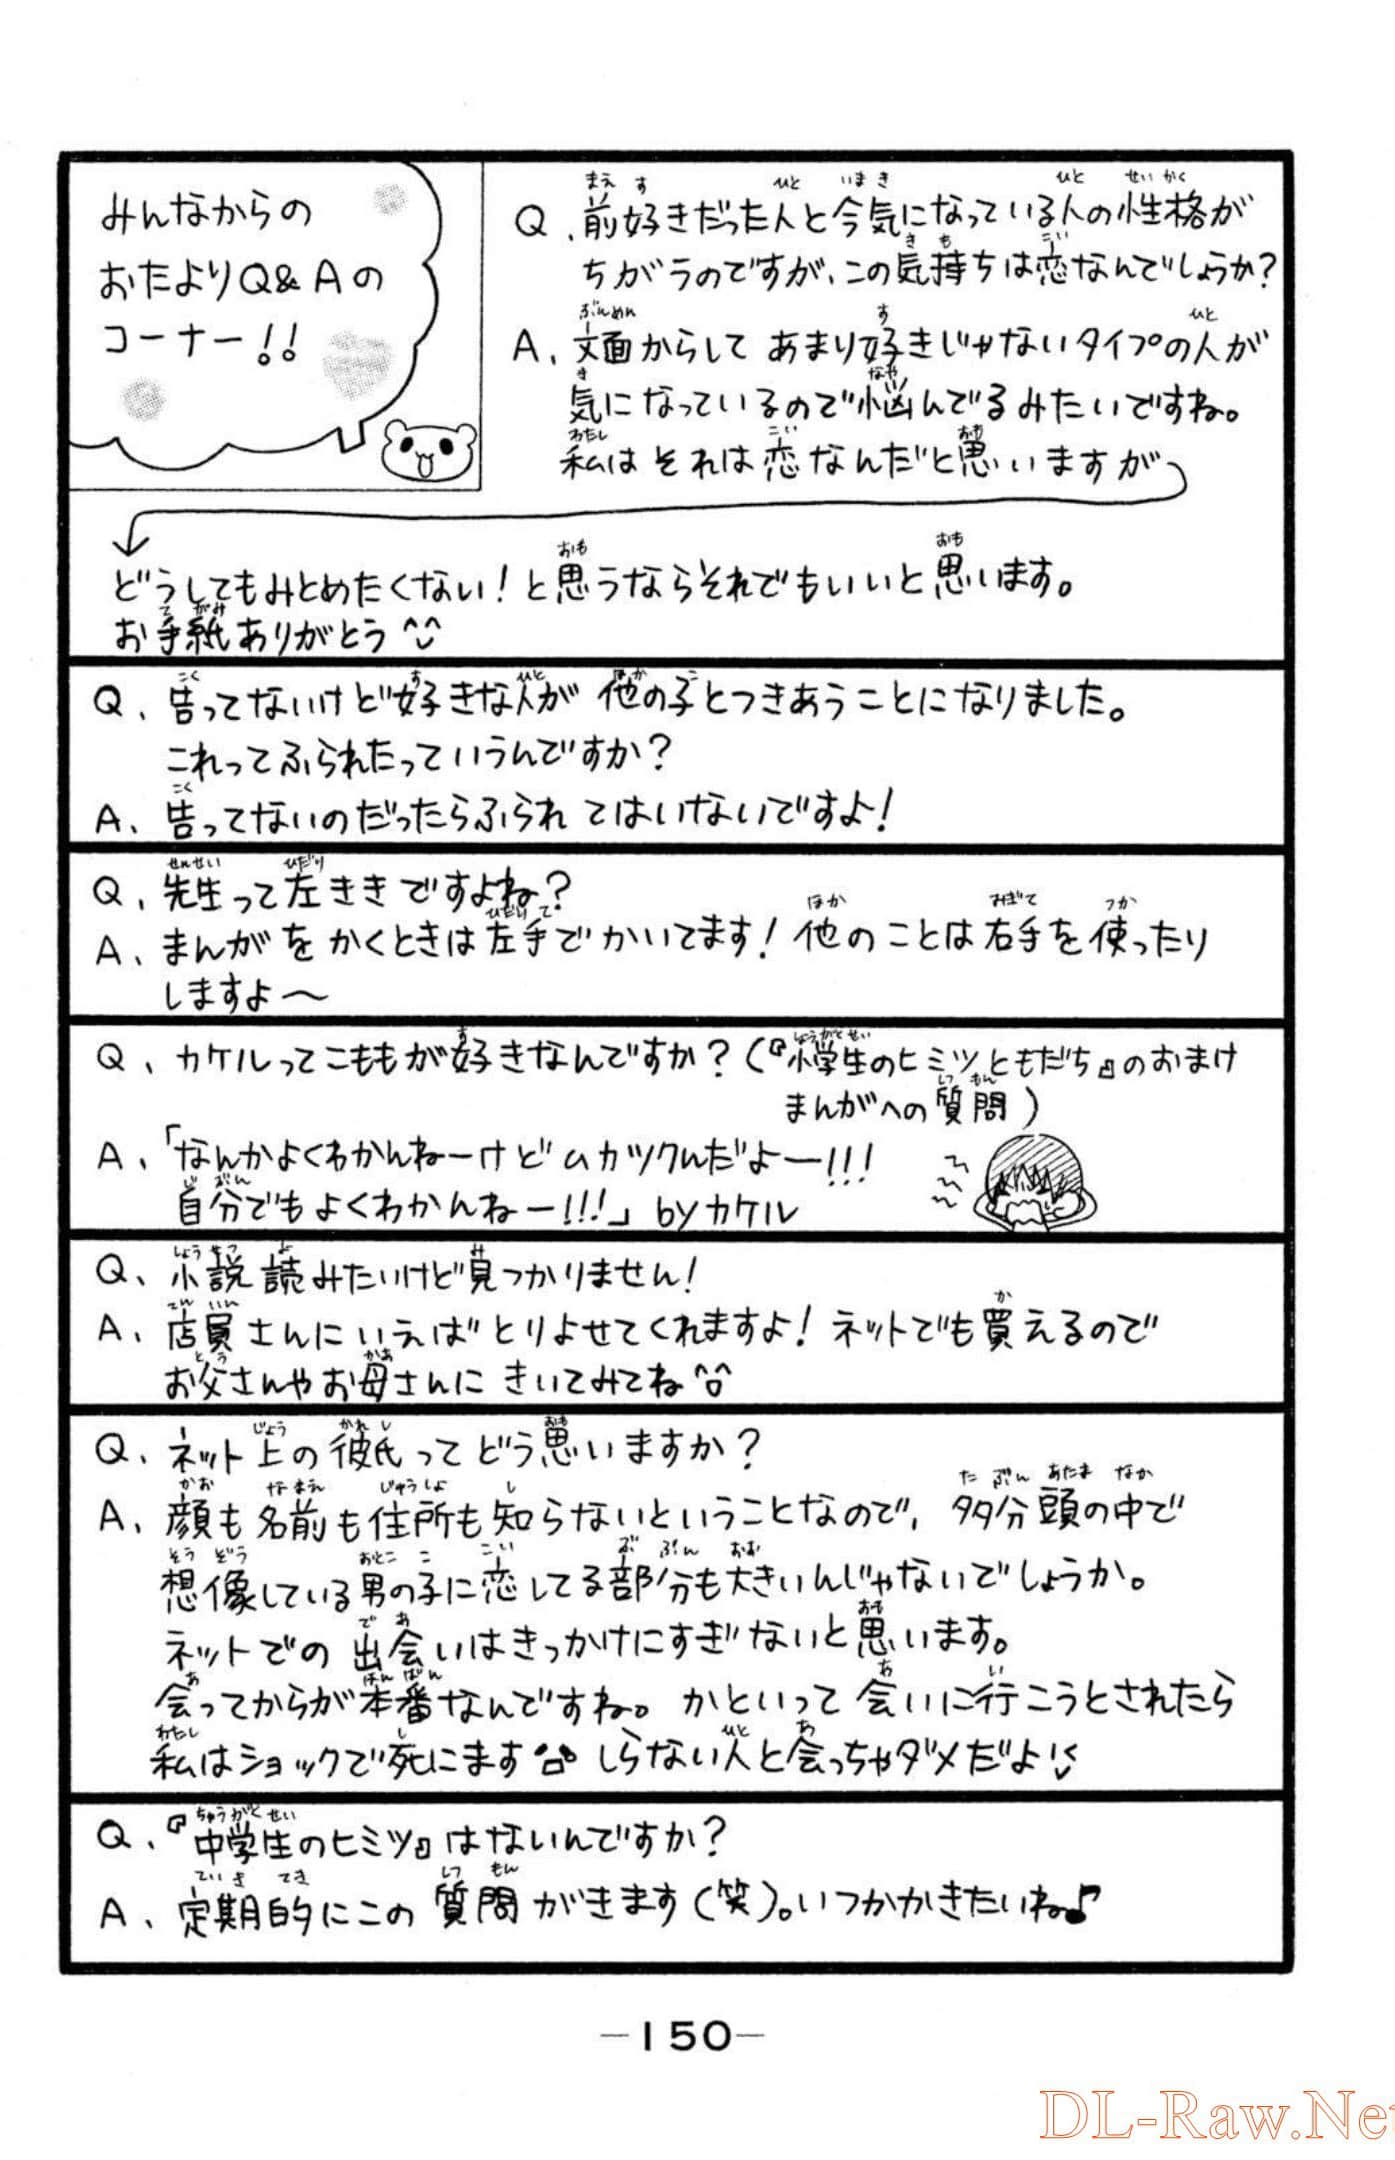 みんなからの
おたよりQ&Aの
コーナー!!
Q、前好きだった人と今気になっている人の性格が
ちがうのですが、この気持ちは恋なんでしょうか?
A、文面からして あまり好きじゃないタイプの人が
気になっているので悩んでるみたいですね。
私は それは恋なんだと思いますが
どうしてもみとめたくない!と思うならそれでもいいと思います。
お手紙ありがとう^^
Q、告ってないけど好きな人が 他の子とつきあうことになりました。
これってふられたっていうんですか?
A、告ってないのだったらふられてはいないですよ!
Q、先生って左ききですよね?
A、まんがをかくときは左手でかいてます!他のことは右手を使ったり
しますよ〜
Q、カケルってこももが好きなんですか?(『小学生のヒミツ ともだち』のおまけ
まんがへの質問)
A、「なんかよくわかんねーけどムカツクんだよー!!!
自分でもよくわかんねー!!!」byカケル
Q、小説読みたいけど見つかりません!
A、店員さんにいえばとりよせてくれますよ!ネットでも買えるので
お父さんやお母さんに きいてみてね^^
Q、ネット上の彼氏ってどう思いますか?
A、顔も名前も住所も知らないということなので、多分頭の中で
想像している男の子に恋してる部分も大きいんじゃないでしょうか。
ネットでの出会いはきっかけにすぎないと思います。
会ってからが本番なんですね。かといって会いに行こうとされたら
私はショックで死にます しらない人と会っちゃダメだよ!
Q、『中学生のヒミツ』はないんですか?
A、定期的にこの質問がきます(笑)。いつかかきたいね♪
—150—
DL-Raw.Net